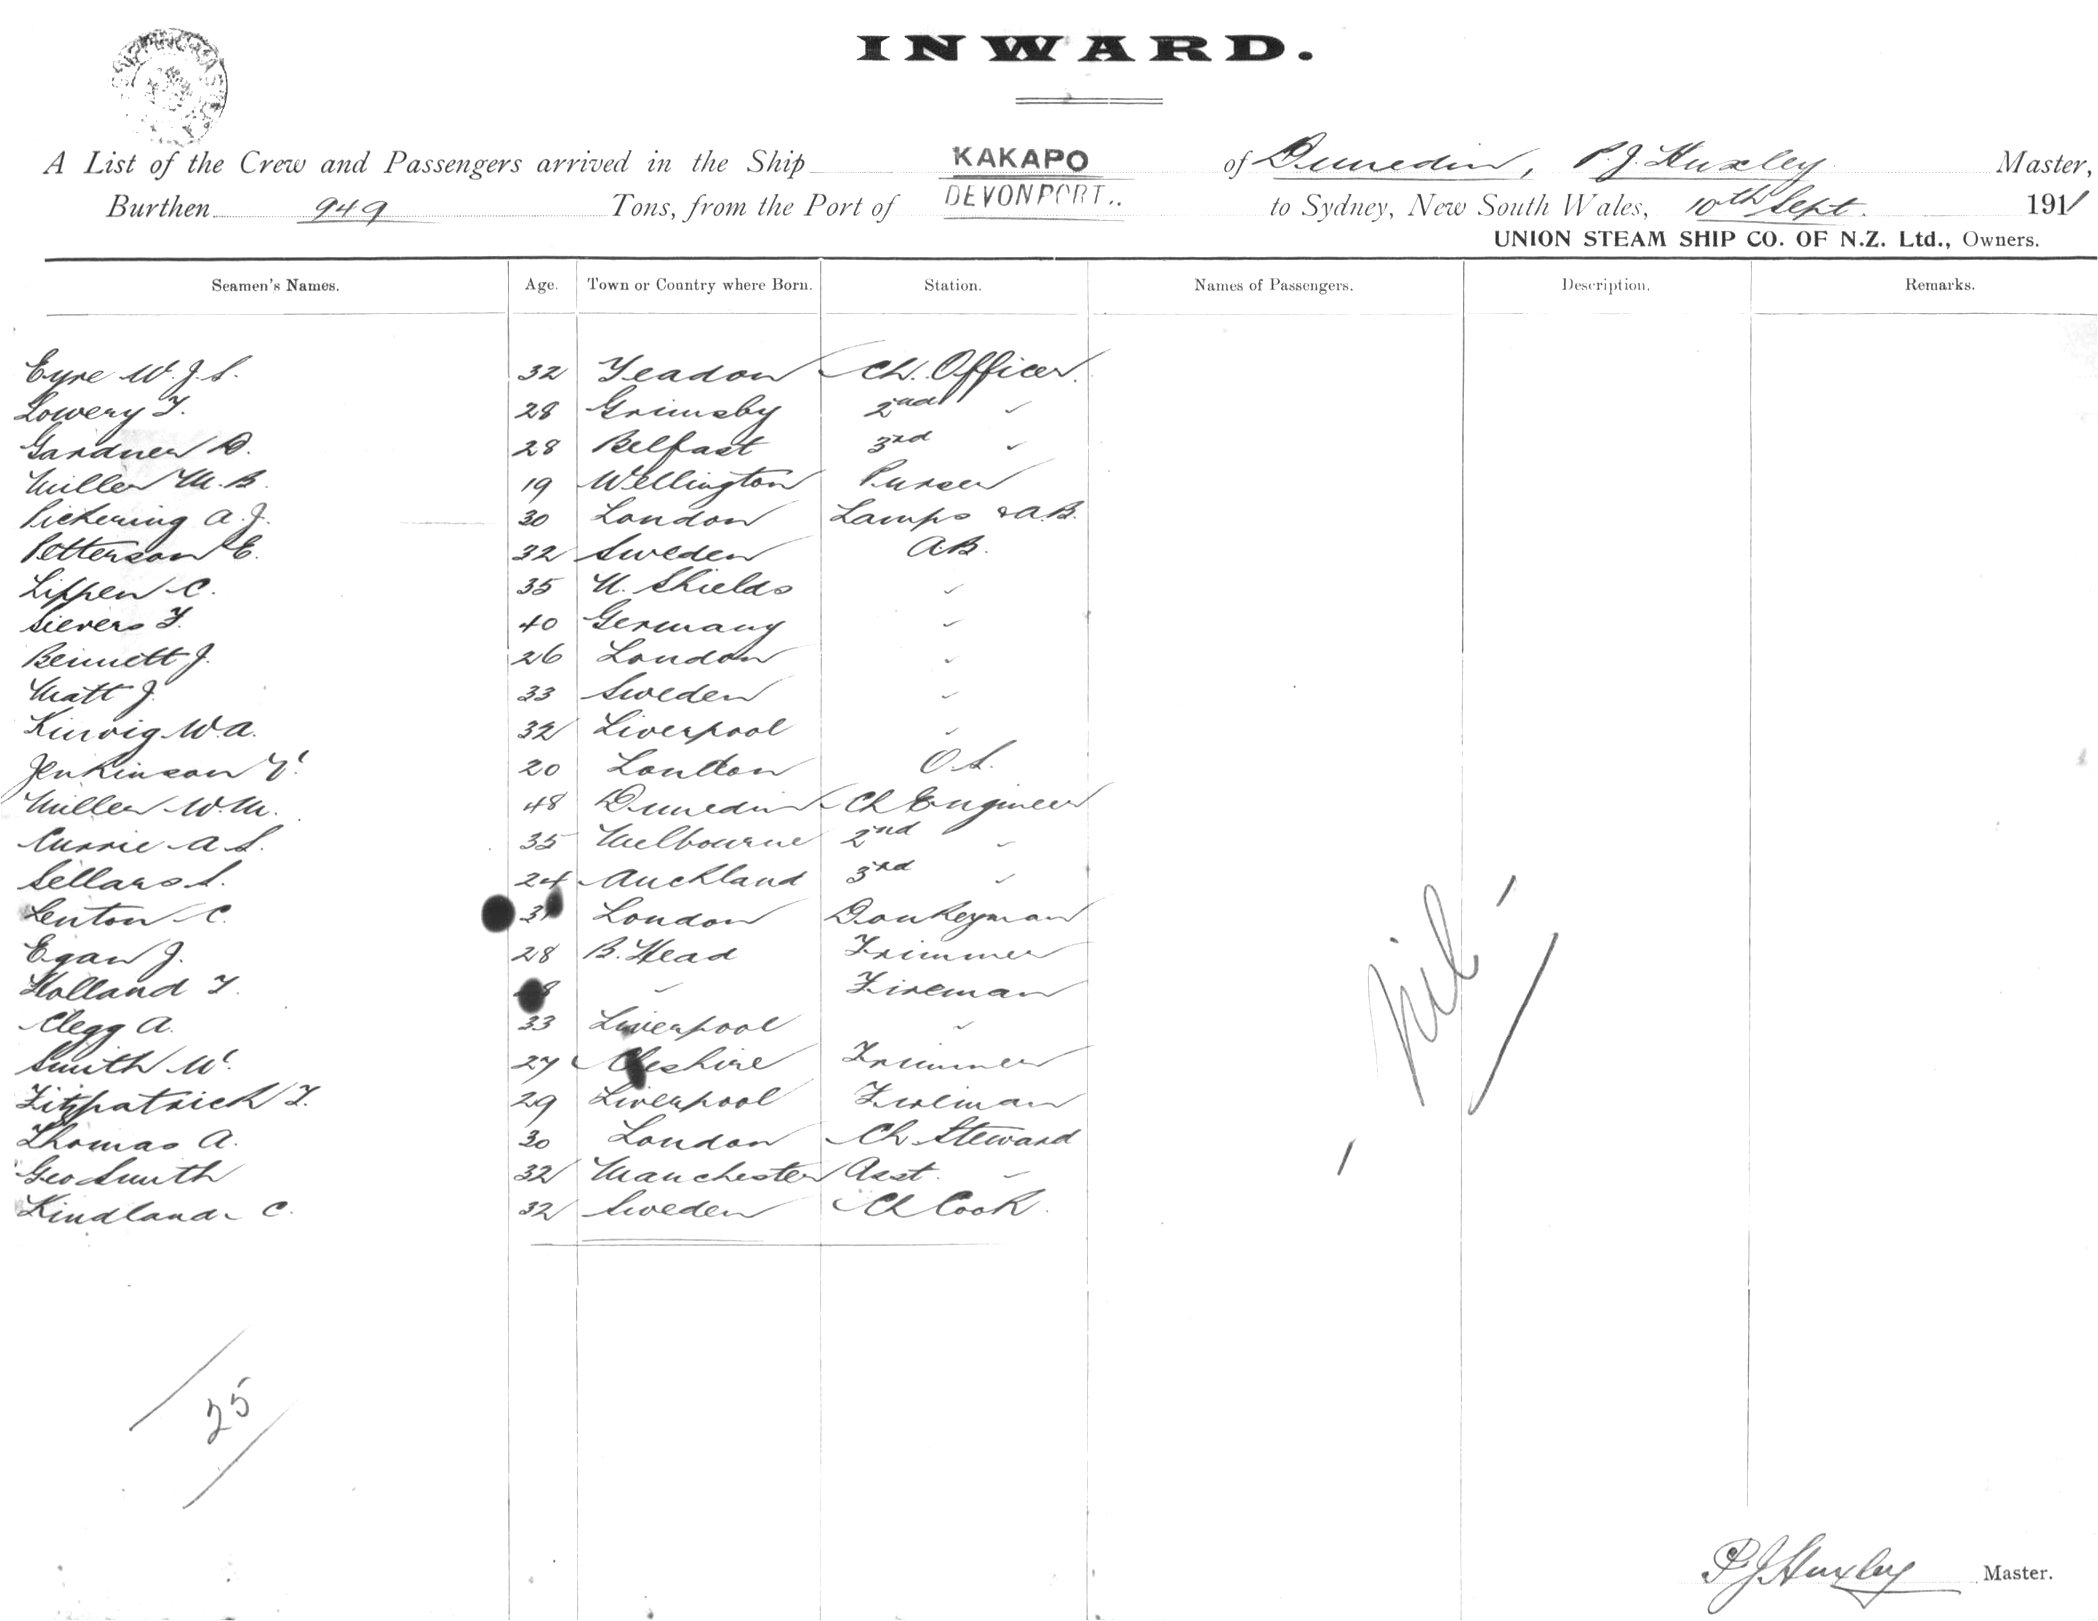 INWARD.
A List of the Crew and Passengers arrived in the Ship KAKAPO of Dunedin, P.J. Huxley Master,
Burthen 949 Tons, from the Port of DEVONPORT.. to Sydney, New South Wales, 10th Sept. 1911
UNION STEAM SHIP CO. OF N.Z. Ltd., Owners.
Seamen's Names. Age. Town or Country where Born. Station. Names of Passengers. Description. Remarks.
Eyre W.J.S. 32 Yeadon Ch. Officer.
Lowery T. 28 Grimsby 2nd "
Gardner D. 28 Belfast 3rd "
Miller M.B. 19 Wellington Purser
Pickering A.J. 30 London Lamps & A.B.
Petterson E. 32 Sweden A.B.
Lippen C. 35 N. Shields "
Sievers F. 40 Germany "
Bennett J. 26 London "
Matt J. 33 Sweden "
Kinvig W.A. 32 Liverpool "
Jenkinson 20 London O.S.
Miller W.M. 48 Dunedin Ch Engineer
Currie A.S. 35 Melbourne 2nd "
Sellars S. 24 Auckland 3rd "
Lenton C. London Donkeyman
Egan J. 28 B. Head Trimmer
Holland T. " Fireman
Clegg A. 33 Liverpool "
Smith W. 27 Cheshire Trimmer
Fitzpatrick T. 29 Liverpool Fireman
Thomas A. 30 London Ch Steward
Geo Smith 32 Manchester Asst. "
Kindland C. 32 Sweden Ch Cook.
- Nil -
25
P J Huxley Master.